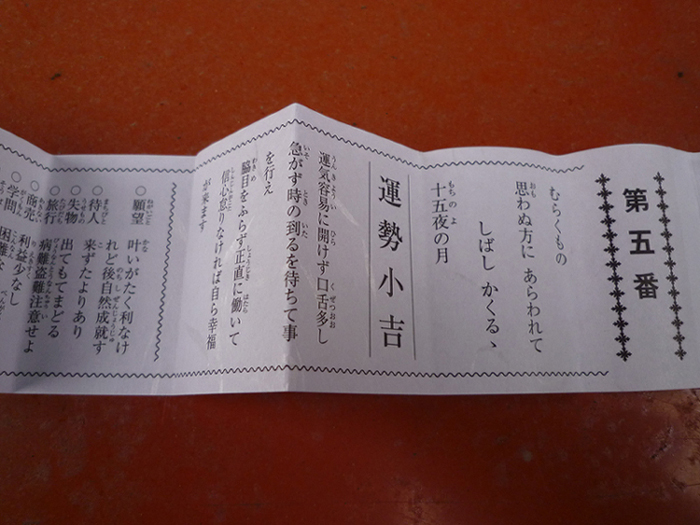 第五番
むらくもの
思わぬ方に あらわれて
しばし かくるゝ
十五夜の月
運勢小吉
運気容易に開けず口舌多し
急がず時の到るを待ちて事
を行え
脇目をふらず正直に働いて
信心怠りなければ自ら幸福
が来ます
○願望 叶いがたく利なけ
れど後自然成就す
○待人 来ずたよりあり
○失物 出てもてまどる
○旅行 病難盗難注意せよ
○商売 利益少なし
○学問 困難な